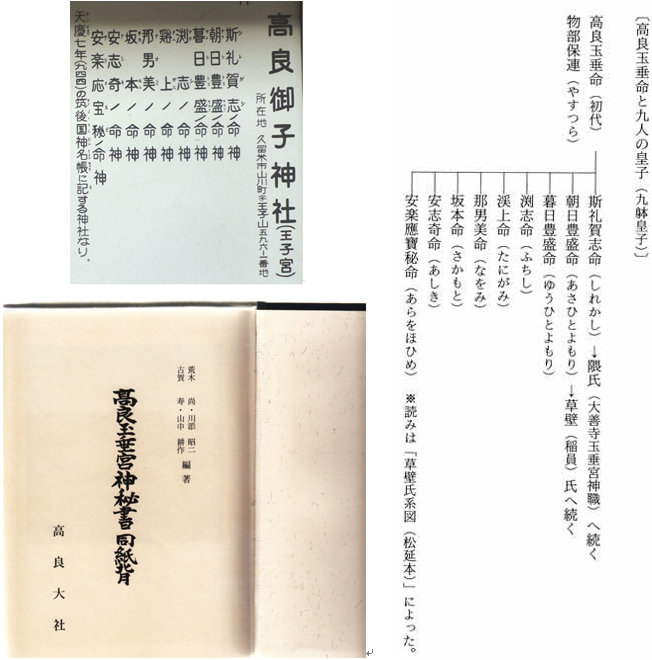 高良御子神社(王子宮)
所在地 久留米市山川町字王子山五九六ー二番地
斯礼賀志ノ命神
朝日豊盛ノ命神
暮日豊盛ノ命神
渕志ノ命神
谿上ノ命神
那男美ノ命神
坂本ノ命神
安志奇ノ命神
安楽応宝秘ノ命神
天慶七年(九四四)の筑後国神名帳に記する神社なり。
荒木 尚・川添 昭二
古賀 寿・山中 耕作 編著
高良玉垂宮神秘書同紙背
高良大社
〔高良玉垂命と九人の皇子(九躰皇子)〕
高良玉垂命(初代)
物部保連(やすつら)
斯礼賀志命(しれかし)→隈氏(大善寺玉垂宮神職)へ続く
朝日豊盛命(あさひとよもり)→草壁(稲員)氏へ続く
暮日豊盛命(ゆうひとよもり)
渕志命(ふちし)
渓上命(たにがみ)
那男美命(なをみ)
坂本命(さかもと)
安志奇命(あしき)
安楽應寳秘命(あらをほひめ) ※読みは「草壁氏系図(松延本)」によった。